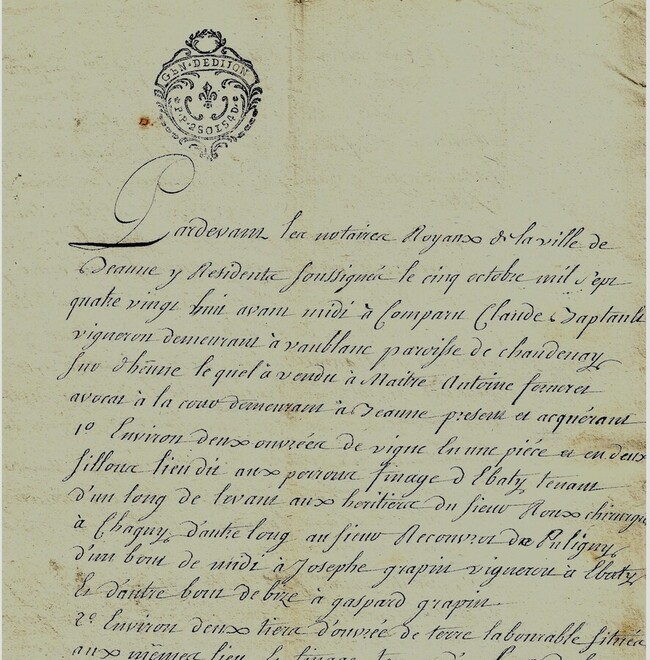 GEN·DEDIJON
P.P. 2SOLS4D.
Pardevant les notaires Royaux de la ville de
Beaune y Residents soussignés le cinq octobre mil sept
quatre vingt huit avant midi à Comparu Claude
vigneron demeurant à vaublanc paroisse de chaudenay
lequel à vendu à Maitre Antoine forneret
avocat à la cour demeurant à Beaune present et acquérant
1o Environ deux ouvrées de vigne En une piéce et en deux
sillons lieu dit aux perrons finage d'Ebaty tenant
d'un long de levant aux heritiers du sieur Roux chirurgi
à Chagny, d'autre long au sieur Recouvrot de Puligny,
d'un bout de midi à Josephe grapin vigneron à Ebaty,
Et d'autre bout de bize à gaspard grapin.
2o Environ deux tiers d'ouvrée de terre labourable située
aux mêmes lieu et finage